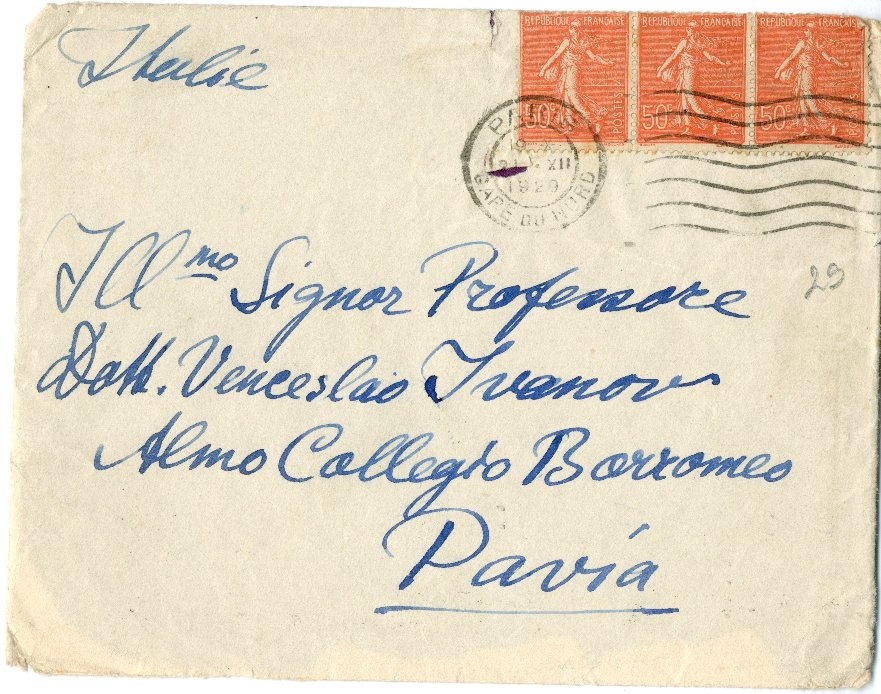 Italie
REPUBLIQUE FRANÇAISE REPUBLIQUE FRANÇAISE REPUBLIQUE FRANÇAISE
50c POSTES 50c POSTES 50c POSTES
PARIS
XII
1929
GARE DU NORD
Ill mo Signor Professore
29
Dott. Venceslao Ivanov
Almo Collegio Borromeo
Pavia